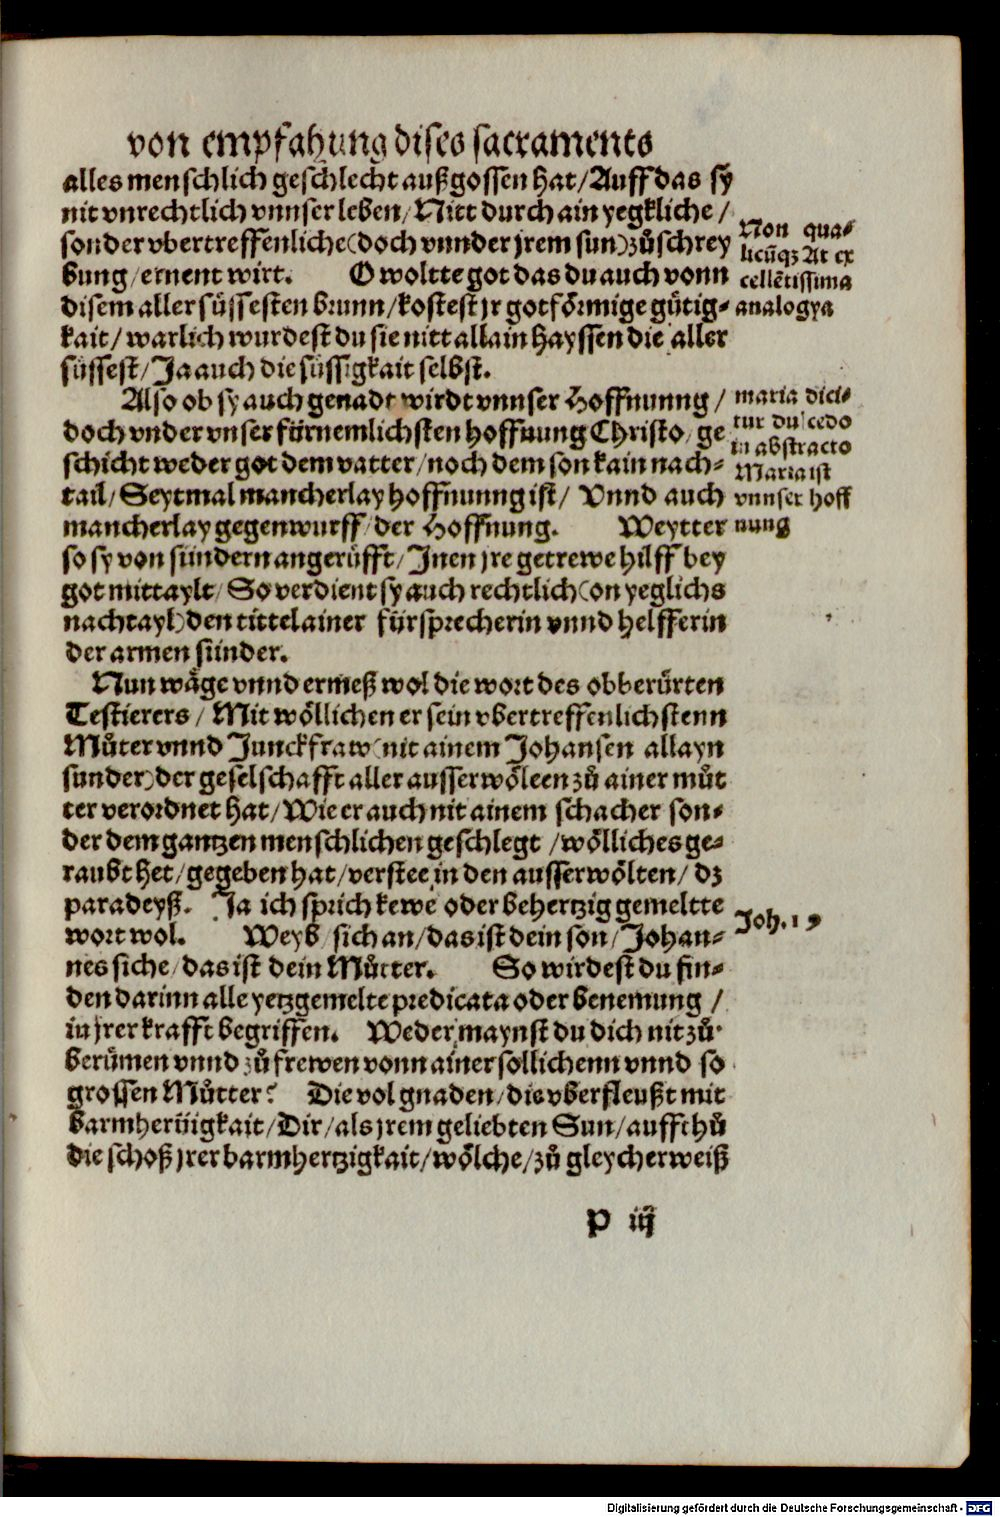 von empfahung dises sacraments
alles menschlich geschlecht außgossen hat/Auff das sy
nit vnrechtlich vnnser leben/Nitt durch ain yegkliche/
sonder vbertreffenliche(doch vnnder jrem sun)zůschrey
bung/ernent wirt. O woltte got das du auch vonn
disem aller süssesten brunn/kostest jr gotförmige gütig-
kait/warlich wurdest du sie nitt allain hayssen die aller
süssest/Ja auch die süssigkait selbst.
Also ob sy auch genadt wirdt vnnser Hoffnunng/
doch vnder vnser fürnemlichsten hoffnung Christo/ge
schicht weder got dem vatter/noch dem son kain nach-
tail/Seytmal mancherlay hoffnunng ist/Vnnd auch
mancherlay gegenwurff/der Hoffnung. Weytter
so sy von sündern angerüfft/Jnen jre getrewe hilff bey
got mittaylt/So verdient sy auch rechtlich(on yeglichs
nachtayl)den tittel ainer fürsprecherin vnnd helfferin
der armen sünder.
Nun wäge vnnd ermeß wol die wort des obberürten
Testierers/Mit wöllichen er sein vbertreffenlichstenn
Můter vnnd Junckfraw(nit ainem Johansen allayn
sunder)der geselschafft aller ausserwöleen zů ainer můt
ter verordnet hat/Wie er auch nit ainem schacher son-
der dem gantzen menschlichen geschlegt/wölliches ge-
raubt het/gegeben hat/verstee in den ausserwölten/dz
paradeyß. Ja ich sprich kewe oder behertzig gemeltte
wort wol. Weyb/sich an/das ist dein son/Johan-
nes siche/das ist dein Můtter. So wirdest du fin-
den darinn alle yetzgemelte predicata oder benemung/
in jrer krafft begriffen. Weder maynst du dich nit zů-
berümen vnnd zů frewen vonn ainer sollichenn vnnd so
grossen Můtter? Die vol gnaden/die vberfleußt mit
barmherüigkait/Dir/als jrem geliebten Sun/auffthů
die schoß jrer barmhertzigkait/wölche/zů gleycherweiß
p iij
Non qua-
licūqꝫ At ex
cellētissima
analogya
maria dici-
tur dulcedo
in abstracto
Maria ist
vnnser hoff
nung
Joh. 19
Digitalisierung gefördert durch die Deutsche Forschungsgemeinschaft - DFG